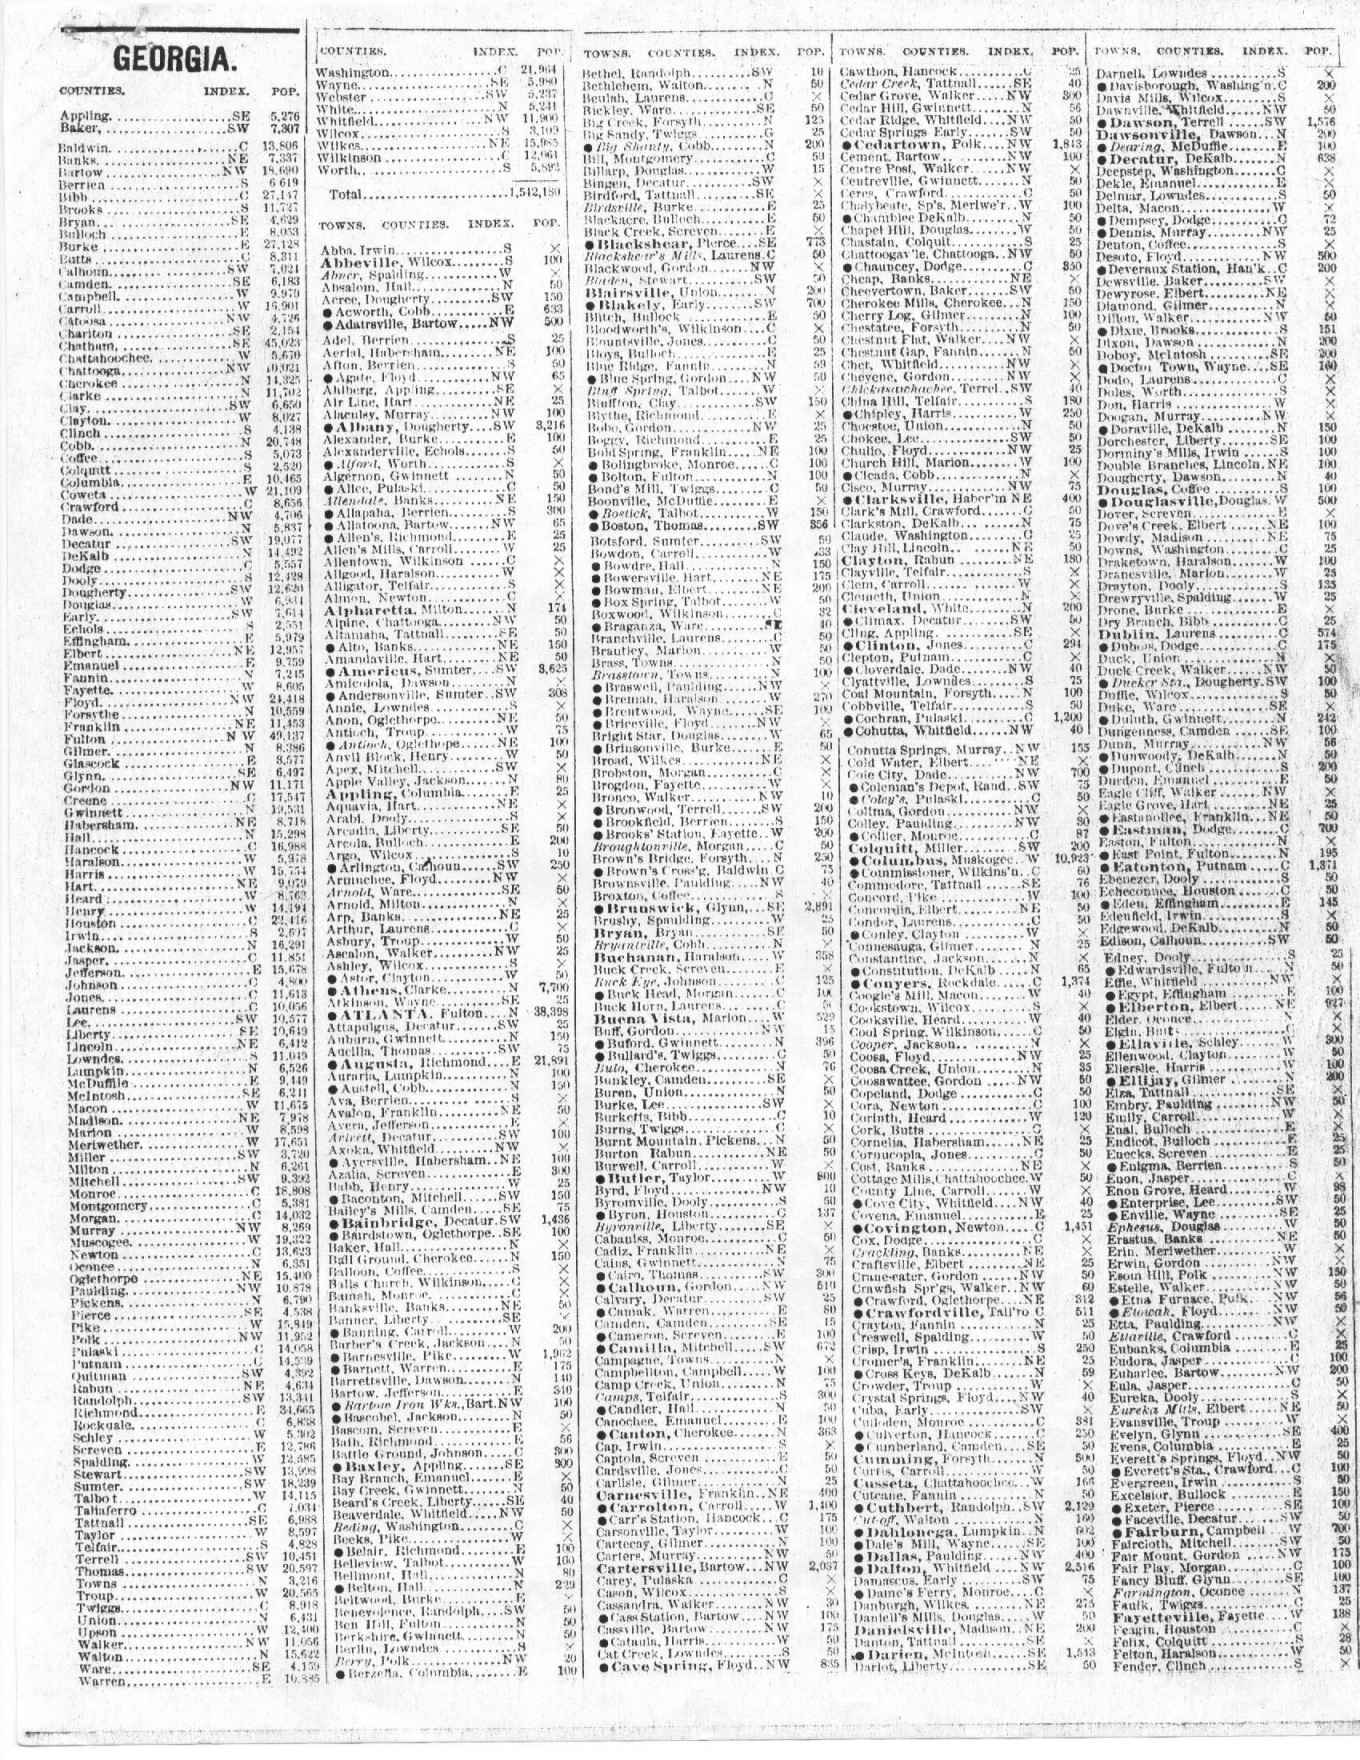 GEORGIA.
COUNTIES. INDEX. POP.
Appling SE 5,276
Baker, SW 7,307
Baldwin C 13,806
Banks NE 7,337
Bartow NW 18,690
Berrien S 6 619
Bibb C 27,147
Brooks S 11,727
Bryan SE 4,929
Bulloch E 8,053
Burke E 27,128
Butts C 8,311
Calhoun SW 7,024
Camden SE 6,183
Campbell W 9,970
Carroll W 16,901
Catoosa NW 4,726
Charlton SE 2,154
Chatham, SE 45,023
Chattahoochee W 5,670
Chattooga NW 10,021
Cherokee N 14,325
Clarke N 11,702
Clay SW 6,650
Clayton W 8,027
Clinch S 4,138
Cobb N 20,748
Coffee S 5,073
Colquitt S 2,520
Columbia E 10,465
Coweta W 21,109
Crawford C 8,656
Dade NW 4,706
Dawson N 5,837
Decatur SW 19,077
DeKalb N 14,492
Dodge C 5,557
Dooly S 12,428
Dougherty SW 12,620
Douglas W 6,934
Early SW 7,614
Echols S 2,551
Effingham E 5,979
Elbert NE 12,957
Emanuel E 9,759
Fannin N 7,245
Fayette W 8,605
Floyd NW 24,418
Forsythe N 10,559
Franklin NE 11,453
Fulton NW 49,137
Gilmer N 8,386
Glascock E 3,577
Glynn SE 6,497
Gordon NW 11,171
Greene C 17,547
Gwinnett N 19,531
Habersham NE 8,718
Hall N 15,298
Hancock C 16,988
Haralson W 5,978
Harris W 15,754
Hart NE 9,079
Heard W 8,762
Henry W 14,194
Houston C 22,416
Irwin S 2,697
Jackson N 16,291
Jasper C 11,851
Jefferson E 15,678
Johnson C 4,800
Jones C 11,613
Laurens C 10,056
Lee SW 10,577
Liberty SE 10,649
Lincoln NE 6,412
Lowndes S 11,049
Lumpkin N 6,526
McDuffie E 9,449
McIntosh SE 6,241
Macon W 11,675
Madison NE 7,978
Marion W 8,598
Meriwether W 17,651
Miller SW 3,720
Milton N 6,261
Mitchell SW 9,392
Monroe C 18,808
Montgomery C 5,381
Morgan C 14,032
Murray NW 8,269
Muscogee W 19,322
Newton C 13,623
Oconee N 6,351
Oglethorpe NE 15,400
Paulding NW 10,878
Pickens N 6,790
Pierce SE 4,538
Pike W 15,849
Polk NW 11,952
Pulaski C 14,058
Putnam C 14,539
Quitman SW 4,392
Rabun NE 4,634
Randolph SW 13,341
Richmond E 34,665
Rockdale C 6,838
Schley W 5,302
Screven E 12,786
Spalding W 12,585
Stewart SW 13,998
Sumter SW 18,239
Talbot W 14,115
Taliaferro C 7,034
Tattnall SE 6,988
Taylor W 8,597
Telfair S 4,828
Terrell SW 10,451
Thomas SW 20,597
Towns N 3,216
Troup W 20,565
Twiggs C 8,918
Union N 6,431
Upson W 12,400
Walker NW 11,056
Walton N 15,622
Ware SE 4,159
Warren E 10,885
COUNTIES. INDEX. POP.
Washington C 21,964
Wayne SE 5,980
Webster SW 5,237
White N 5,341
Whitfield NW 11,900
Wilcox S 3,109
Wilkes NE 15,985
Wilkinson C 12,061
Worth S 5,892
Total 1,542,180
TOWNS. COUNTIES. INDEX. POP.
Abba, Irwin S ×
Abbeville, Wilcox S 100
Abner, Spalding W ×
Absalom, Hall N 50
Acree, Dougherty SW 150
● Acworth, Cobb E 633
● Adairsville, Bartow NW 500
Adel, Berrien S 25
Aerial, Habersham NE 100
Afton, Berrien S 50
● Agate, Floyd NW 65
Ahlberg, Appling SE ×
Air Line, Hart NE 25
Alaculsy, Murray NW 100
● Albany, Dougherty SW 3,216
Alexander, Burke E 100
Alexanderville, Echols S 50
● Alford, Worth S ×
Algernon, Gwinnett N 50
● Allee, Pulaski C 50
Allendale, Banks NE 150
● Allapaha, Berrien S 300
● Allatoona, Bartow NW 65
● Allen's, Richmond E 25
Allen's Mills, Carroll W 25
Allentown, Wilkinson C ×
Allgood, Haralson W ×
Alligator, Telfair S ×
Almon, Newton C ×
Alpharetta, Milton N 174
Alpine, Chattooga NW 50
Altamaha, Tattnall SE 50
● Alto, Banks NE 150
Amandaville, Hart NE 50
● Americus, Sumter SW 3,625
Amicolola, Dawson N ×
● Andersonville, Sumter SW 308
Annie, Lowndes S ×
Anon, Oglethorpe NE 50
Antioch, Troup W 75
● Antioch, Oglethope NE 100
Anvil Block, Henry W 50
Apex, Mitchell SW ×
Apple Valley, Jackson N 80
Appling, Columbia E 25
Aquavia, Hart NE ×
Arabi, Dooly S ×
Arcadia, Liberty SE 50
Arcola, Bulloch E 200
Argo, Wilcox S 10
● Arlington, Calhoun SW 250
Armuchee, Floyd NW ×
Arnold, Ware SE 50
Arnold, Milton N ×
Arp, Banks NE 25
Arthur, Laurens C ×
Asbury, Troup W 50
Ascalon, Walker NW 25
Ashley, Wilcox S ×
● Astor, Clayton W 50
● Athens, Clarke N 7,700
Atkinson, Wayne SE 25
● ATLANTA, Fulton N 38,398
Attapulgus, Decatur SW 25
Auburn, Gwinnett N 150
Aucilla, Thomas SW 75
● Augusta, Richmond E 21,891
Auraria, Lumpkin N 100
● Austell, Cobb N 150
Ava, Berrien S ×
Avalon, Franklin NE 50
Avera, Jefferson E ×
Decatur SW 100
Axoka, Whitfield NW ×
● Ayersville, Habersham NE 100
Azalia, Screven E 300
Babb, Henry W 25
● Baconton, Mitchell SW 150
Bailey's Mills, Camden SE 75
● Bainbridge, Decatur SW 1,436
● Bairdstown, Oglethorpe SE 100
Baker, Hall N ×
Ball Ground, Cherokee N 150
Balloon, Coffee S ×
Balls Church, Wilkinson C ×
Monroe C ×
Banksville, Banks NE 50
Banner, Liberty SE ×
● Banning, Carroll W 200
Barber's Creek, Jackson N 50
● Barnesville, Pike W 1,962
● Barnett, Warren E 175
Barrettsville, Dawson N 140
Bartow, Jefferson E 310
● Bartow Iron Wks., Bart. NW 100
● Bascobel, Jackson N 50
Bascom, Screven E ×
Bath, Richmond E 56
Battle Ground, Johnson C 300
● Baxley, Appling SE 300
Bay Branch, Emanuel E ×
Bay Creek, Gwinnett N 50
Beard's Creek, Liberty SE 40
Beaverdale, Whitfield NW 50
Beding, Washington C ×
Beeks, Pike W ×
● Belair, Richmond E 100
Belleview, Talbot W 100
Bellmont, Hall N 80
● Belton, Hall N 239
Beltwood, Burke E ×
Benevolence, Randolph SW 50
Ben Hill, Fulton N 50
Berkshire, Gwinnett N 50
Berlin, Lowndes S ×
Berry, Polk NW 20
● Berzelia, Columbia E 100
TOWNS. COUNTIES. INDEX. POP.
Bethel, Randolph SW 10
Bethlehem, Walton N 50
Beulah, Laurens C ×
Bickley, Ware SE 50
Big Creek, Forsyth N 125
Big Sandy, Twiggs C 25
● Big Shanty, Cobb N 200
Bill, Montgomery C 50
Billarp, Douglas W 15
Bingen, Decatur SW ×
Birdford, Tattnall SE ×
Birdsville, Burke E 25
Blackacre, Bulloch E 50
Black Creek, Screven E ×
● Blackshear, Pierce SE 773
Blackshear's Mills, Laurens C 50
Blackwood, Gordon NW ×
Bladen, Stewart SW ×
Blairsville, Union N 200
● Blakely, Early SW 700
Blitch, Bullock E 50
Bloodworth's, Wilkinson C ×
Blountsville, Jones C 50
Bloys, Bulloch E 25
Blue Ridge, Fannin N 50
● Blue Spring, Gordon NW ×
Bluff Spring, Talbot W ×
Bluffton, Clay SW 150
Blythe, Richmond E ×
Bobo, Gordon NW 25
Boggy, Richmond E 25
Bold Spring, Franklin NE 100
● Bolingbroke, Monroe C 100
● Bolton, Fulton N 100
Bond's Mill, Twiggs C 50
Boonville, McDuffie E ×
● Bostick, Talbot W 150
● Boston, Thomas SW 356
Botsford, Sumter SW 50
Bowdon, Carroll W .33
● Bowdre, Hall N 150
● Bowersville, Hart NE 175
● Bowman, Elbert NE 200
● Box Spring, Talbot W 50
Boxwood, Wilkinson C 32
● Braganza, Ware SE 40
Branchville, Laurens C 50
Brantley, Marion W 50
Brass, Towns N 50
Brasstown, Towns N 100
● Braswell, Paulding NW ×
● Breman, Haralson W 270
● Brentwood, Wayne SE 100
● Briceville, Floyd NW ×
Bright Star, Douglas W 65
● Brinsonville, Burke E 50
Broad, Wilkes NE ×
Brobston, Morgan C ×
Brogdon, Fayette W ×
Bronco, Walker NW 10
● Bronwood, Terrell SW 200
● Brookfield, Berrien S 150
● Brooks' Station, Fayette W 200
Broughtonville, Morgan C 50
Brown's Bridge, Forsyth N 250
● Brown's Cross'g, Baldwin C 75
Brownsville, Paulding NW 40
Broxton, Coffee S ×
● Brunswick, Glynn SE 2,891
Brushy, Spaulding W 25
Bryan, Bryan SE 50
Bryantville, Cobb N ×
Buchanan, Haralson W 358
Buck Creek, Screven E ×
Buck Eye, Johnson C 125
● Buck Head, Morgan C 100
Buck Horn, Laurens C 50
Buena Vista, Marion W 529
Buff, Gordon NW 15
● Buford, Gwinnett N 396
● Bullard's, Twiggs C 50
Buto, Cherokee N 76
Bunkley, Camden SE ×
Buren, Union N ×
Burke, Lee SW ×
Burketts, Bibb C 10
Burns, Twiggs C ×
Burnt Mountain, Pickens N 50
Burton Rabun NE 50
Burwell, Carroll W ×
● Butler, Taylor W 800
Byrd, Floyd NW 10
Byromville, Dooly S 50
● Byron, Houston C 137
Byronville, Liberty SE ×
Cabaniss, Monroe C 50
Cadiz, Franklin NE ×
Cains, Gwinnett N 75
● Cairo, Thomas SW 300
● Calhoun, Gordon NW 510
Calvary, Decatur SW 25
● Camak, Warren E 80
Camden, Camden SE 15
● Cameron, Screven E 100
● Camilla, Mitchell SW 672
Campagne, Towns N ×
Campbellton, Campbell W 100
Camp Creek, Union N 75
Camps, Telfair S 300
● Candler, Hall N 50
Canochee, Emanuel E 100
● Canton, Cherokee N 363
Cap, Irwin S ×
Captola, Screven E 50
Cardsville, Jones C 50
Carlisle, Gilmer N 25
Carnesville, Franklin NE 400
● Carrolton, Carroll W 1,400
● Carr's Station, Hancock C 175
Carsonville, Taylor W 100
Cartecay, Gilmer N 100
Carters, Murray NW 50
Cartersville, Bartow NW 2,037
Carey, Pulaska C ×
Cason, Wilcox S ×
Cassandra, Walker NW 30
● Cass Station, Bartow NW 100
Cassville, Bartow NW 175
● Cataula, Harris W 50
Cat Creek, Lowndes S 50
● Cave Spring, Floyd NW 835
TOWNS. COUNTIES. INDEX. POP.
Cawthon, Hancock C 25
Cedar Creek, Tattnall SE 40
Cedar Grove, Walker NW 300
Cedar Hill, Gwinnett N 56
Cedar Ridge, Whitfield NW 50
Cedar Springs Early SW 50
● Cedartown, Polk NW 1,843
Cement, Bartow NW 100
Centre Post, Walker NW ×
Centreville, Gwinnett N 50
Ceres, Crawford C 50
Chalybeate, Sp's, Meriwe'r W 100
● Chamblee DeKalb N 50
Chapel Hill, Douglas W 50
Chastain, Colquit S 25
Chattoogav'le, Chattooga NW 50
● Chauncey, Dodge C 350
Cheap, Banks NE ×
Cheevertown, Baker SW 50
Cherokee Mills, Cherokee N 150
Cherry Log, Gilmer N 100
Chestatee, Forsyth N 50
Chestnut Flat, Walker NW ×
Chestnut Gap, Fannin N 50
Chet, Whitfield NW ×
Cheyene, Gordon NW ×
Chickasawhachee, Terrel SW 40
China Hill, Telfair S 180
● Chipley, Harris W 250
Choestoe, Union N 50
Chokee, Lee SW 50
Chulio, Floyd NW 25
Church Hill, Marion W 100
● Cicada, Cobb N ×
Cisco, Murray NW 75
● Clarksville, Haber'm NE 400
Clark's Mill, Crawford C 50
Clarkston, DeKalb N 75
Claude, Washington C 25
Clay Hill, Lincoln NE 50
Clayton, Rabun NE 180
Clayville, Telfair S ×
Clem, Carroll W ×
Clemeth, Union N ×
Cleveland, White N 200
● Climax, Decatur SW 50
Cling, Appling SE ×
● Clinton, Jones C 294
Clepton, Putnam C ×
● Cloverdale, Dade NW 40
Clyattville, Lowndes S 75
Coal Mountain, Forsyth N 100
Cobbville, Telfair S 50
● Cochran, Pulaski C 1,200
● Cohutta, Whitfield NW 40
Cohutta Springs, Murray NW 155
Cold Water, Elbert NE ×
Cole City, Dade NW 700
● Coleman's Depot, Rand SW 75
● Coley's, Pulaski C 50
Colima, Gordon NW ×
Colley, Paulding NW 30
● Collier, Monroe C 87
Colquitt, Miller SW 200
● Columbus, Muskogee W 10,923
● Commissioner, Wilkins'n C 60
Commodore, Tattnall SE 76
Concord, Pike W 100
Concordia, Elbert NE 50
Condor, Laurens C ×
● Conley, Clayton W ×
Connesauga, Gilmer N 25
Constantine, Jackson N ×
● Constitution, DeKalb N 65
● Conyers, Rockdale C 1,374
Coogle's Mill, Macon W 40
Cookstown, Wilcox S ×
Cooksville, Heard W 40
Cool Spring, Wilkinson C 50
Cooper, Jackson N ×
Coosa, Floyd NW 25
Coosa Creek, Union N 35
Coosawattee, Gordon NW 50
Copeland, Dodge C 50
Cora, Newton C 100
Corinth, Heard W 120
Cork, Butts C ×
Cornelia, Habersham NE 25
Cornucopia, Jones C 50
Cost, Banks NE ×
Cottage Mills, Chattahoochee W 50
County Line, Carroll W ×
● Cove City, Whitfield NW 40
Covena, Emanuel E 25
● Covington, Newton C 1,451
Cox, Dodge C ×
Crackling, Banks NE ×
Craftsville, Elbert NE 25
Crane-eater, Gordon NW 50
Crawfish Spr'gs, Walker NW 60
● Crawford, Oglethorpe NE 312
● Crawfordville, Tali'ro C 511
Crayton, Fannin N 25
Creswell, Spalding W 50
Crisp, Irwin S 250
Cromer's, Franklin NE 25
● Cross Keys, DeKalb N 59
Crowder, Troup W ×
Crystal Springs, Floyd NW 40
Cuba, Early SW ×
Culloden, Monroe C 381
● Culverton, Hancock C 250
● Cumberland, Camden SE 50
Cumming, Forsyth N 500
Curtis, Carroll W 50
Cusseta, Chattahoochee W 165
Cutcane, Fannin N 50
● Cuthbert, Randolph SW 2,129
Cut-off, Walton N 160
● Dahlonega, Lumpkin N 602
● Dale's Mill, Wayne SE 100
● Dallas, Paulding NW 400
● Dalton, Whitfield NW 2,516
Damascus, Early SW 75
● Dame's Ferry, Monroe C ×
Danburgh, Wilkes NE 275
Daniell's Mills, Douglas W 50
Danielsville, Madison NE 200
Danton, Tattnall SE ×
● Darien, McIntosh SE 1,543
Dariot, Liberty SE 50
TOWNS. COUNTIES. INDEX. POP.
Darnell, Lowndes S ×
● Davisborough, Washing'n C 200
Davis Mills, Wilcox S ×
Dawnville, Whitfield NW 50
● Dawson, Terrell SW 1,576
Dawsonville, Dawson N 200
● Dearing, McDuffie E 100
● Decatur, DeKalb N 638
Deepstep, Washington C ×
Dekle, Emanuel E ×
Delmar, Lowndes S 50
Delta, Macon W ×
● Dempsey, Dodge C 72
● Dennis, Murray NW 25
Denton, Coffee S ×
Desoto, Floyd NW 500
● Deveraux Station, Han'k C 200
Dewsville, Baker SW ×
Dewyrose, Elbert NE ×
Diamond, Gilmer N ×
Dillon, Walker NW 50
● Dixie, Brooks S 151
Dixon, Dawson N 200
Doboy, McIntosh SE 200
● Doctor Town, Wayne SE 160
Dodo, Laurens C ×
Doles, Worth S ×
Don, Harris W ×
Doogan, Murray NW ×
● Doraville, DeKalb N 150
Dorchester, Liberty SE 100
Dorminy's Mills, Irwin S 100
Double Branches, Lincoln NE 100
Dougherty, Dawson N 40
Douglas, Coffee S 100
● Douglasville, Douglas W 500
Dover, Screven E ×
Dove's Creek, Elbert NE 100
Dowdy, Madison NE 75
Downs, Washington C 25
Draketown, Haralson W 100
Dranesville, Marion W 25
Drayton, Dooly S 133
Drewryville, Spalding W 25
Drone, Burke E ×
Dry Branch, Bibb C 25
Dublin, Laurens C 574
● Dubois, Dodge C 175
Duck, Union N ×
Duck Creek, Walker NW 50
● Ducker Sta., Dougherty SW 100
Duffie, Wilcox S 50
Duke, Ware SE ×
● Duluth, Gwinnett N 242
Dungenness, Camden SE 100
Dunn, Murray NW 56
● Dunwoody, DeKalb N 50
● Dupont, Clinch S 200
Durden, Emanuel E 50
Eagle Cliff, Walker NW ×
Eagle Grove, Hart NE 25
● Eastanollee, Franklin NE 50
● Eastman, Dodge C 700
Easton, Fulton N ×
● East Point, Fulton N 195
● Eatonton, Putnam C 1,371
Ebenezer, Dooly S 50
Echeconnee, Houston C 50
● Eden, Effingham E 145
Edenfield, Irwin S ×
Edgewood, DeKalb N 50
Edison, Calhoun SW 50
Edney, Dooly S 25
● Edwardsville, Fulton N 50
Effie, Whitfield NW ×
● Egypt, Effingham E 100
● Elberton, Elbert NE 927
Elder, Oconee N ×
Elgin, Butt C ×
● Ellaville, Schley W 300
Ellenwood, Clayton W 50
Ellerslie, Harris W 100
● Ellijay, Gilmer N 200
Elza, Tattnall SE ×
Embry, Paulding NW 50
Emily, Carroll W ×
Enal, Bulloch E 25
Endicot, Bulloch E 25
Enecks, Screven E 25
● Enigma, Berrien S 50
Enon, Jasper C ×
Enon Grove, Heard W 98
● Enterprise, Lee SW 50
● Enville, Wayne SE 25
Ephesus, Douglas W 50
Erastus, Banks NE 50
Erin, Meriwether W ×
Erwin, Gordon NW ×
Esom Hill, Polk NW 150
Estelle, Walker NW 50
● Etna Furnace, Polk NW 56
● Etowah, Floyd NW 50
Etta, Paulding NW ×
Ettaville, Crawford C ×
Eubanks, Columbia E 25
Eudora, Jasper C 100
Euharlee, Bartow NW 200
Eula, Jasper C 50
Eureka, Dooly S ×
Eureka Mills, Elbert NE 50
Evansville, Troup W ×
Evelyn, Glynn SE 400
Evens, Columbia E 25
Everett's Springs, Floyd NW 50
● Everett's Sta., Crawford C 100
Evergreen, Irwin S 50
Excelsior, Bullock E 150
● Exeter, Pierce SE 100
● Faceville, Decatur SW 50
● Fairburn, Campbell W 700
Faircloth, Mitchell SW 50
Fair Mount, Gordon NW 175
Fair Play, Morgan C 100
Fancy Bluff, Glynn SE 100
Farmington, Oconee N 137
Faulk, Twiggs C 25
Fayetteville, Fayette W 138
Feagin, Houston C ×
Felix, Colquitt S 28
Felton, Haralson W 50
Fender, Clinch S ×